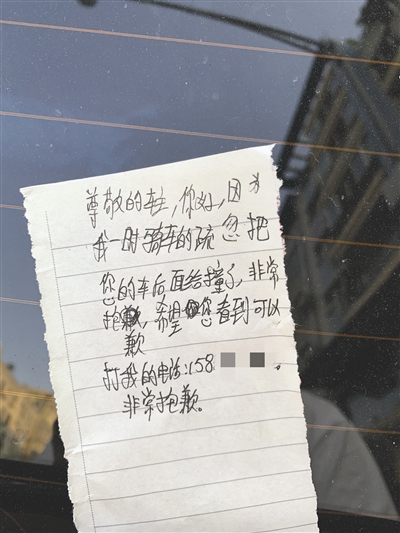 尊敬的车主，你好，因为
我一时骑车的疏忽把
您的车后面给撞了，非常
抱歉，希望您看到可以
歉
打我的电话：158
非常抱歉。